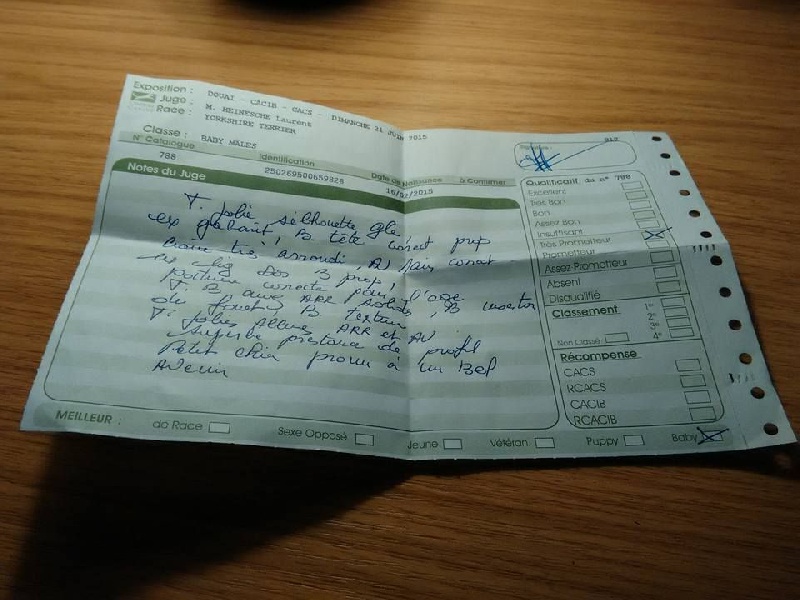 Exposition : DOUAI - CACIB - CACS - DIMANCHE 21 JUIN 2015
Juge : M. HEINESCHE Laurent
Race : YORKSHIRE TERRIER
Classe : BABY MALES
N° Catalogue Identification Date de Naissance à Confirmer
788
Notes du Juge
T. jolie silhouette gle,
ex gabarit, B tête correct prop
ex chg Dos B prop,
position correcte pour l'age
T. B
de fouet, B texture
T. jolies allures ARR et AV
superbe prestance de profil
Petit chien promu à un Bel
Avenir
Qualificatif du n° 788
Excellent
Très Bon
Bon
Assez Bon
Insuffisant
Très Prometteur
Prometteur
Assez Prometteur
Absent
Disqualifié
Classement
1er
2e
3e
4e
Non Classé
Récompense
CACS
RCACS
CACIB
RCACIB
MEILLEUR : de Race Sexe Opposé Jeune Vétéran Puppy Baby